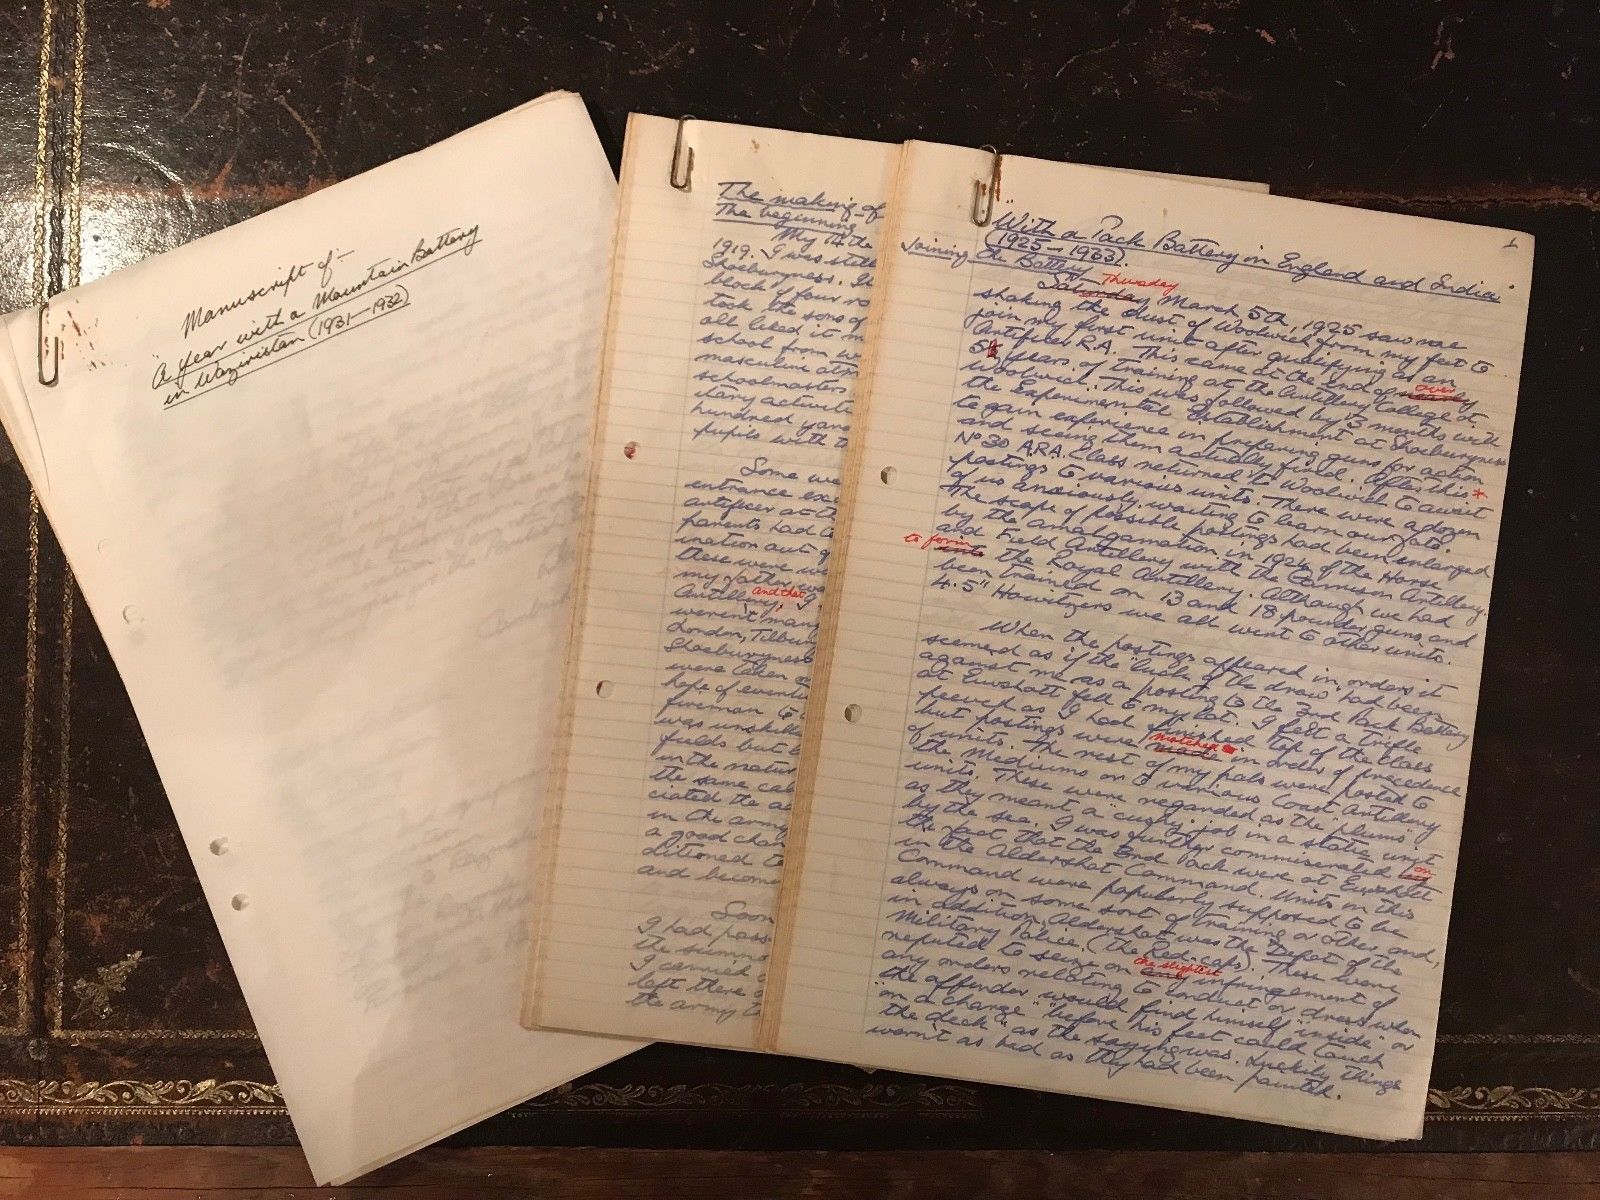 Manuscript of:-
"A year with a Mountain Battery
in Waziristan (1931-1932)
The making of
The beginning
My 14th
1919. I was still
Shoeburyness. It
block of four ro
took the sons of
all liked it m
school from w
masculine atm
schoolmasters
itary activiti
hundred yard
pupils with t
Some we
entrance exa
artificer at th
parents had t
ination out of
these were we
my father was
Artillery, and that I
weren't many
London, Tilbury
Shoeburyness
were taken
hope of eventu
fireman to
was unskille
fields but b
in the natur
the same cal
ciated the ad
in the army
a good chan
ditioned to
and become
Soon
I had pass
the summo
I carried
left there
the army to
1
"With a Pack Battery in England and India"
(1925-1963).
Joining the Battery
Saturday Thursday March 5th, 1925 saw me
shaking the dust of Woolwich from my feet to
join my first unit after qualifying as an
Artificer R.A. This came at the end of nearly over
5½ years of training at the Artillery College at
Woolwich. This was followed by 3 months with
the Experimental Establishment at Shoeburyness
to gain experience in preparing guns for action
and seeing them actually fired. After this *
No 30 A.R.A. Class returned to Woolwich to await
postings to various units. There were a dozen
of us anxiously waiting to learn our fate.
The scope of possible postings had been enlarged
by the amalgamation in 1924 of the Horse
and Field Artillery with the Garrison Artillery
to form into the Royal Artillery. Although we had
been trained on 13 and 18 pounder guns and
4.5" Howitzers we all went to other units.
When the postings appeared in orders it
seemed as if the "luck of the draw" had been
against me as a posting to the 2nd Pack Battery
at Ewshott fell to my lot. I felt a trifle
peeved as I had finished top of the class
but postings were made matched in order of precedence
of units. The rest of my pals were posted to
the Mediums or to various Coast Artillery
units. These were regarded as the "plums"
as they meant a "cushy" job in a static unit
by the sea. I was further commiserated on
the fact that the 2nd Pack were at Ewshott
in the Aldershot Command. Units in this
Command were popularly supposed to be
always on some sort of training or other and,
in addition, Aldershot was the Depot of the
Military Police, (the Red-caps). These were
reputed to seize on any the slightest infringement of
any orders relating to conduct or dress when
the offender would find himself "inside" or
"on a charge" "before his feet could touch
the deck" as the saying was. Luckily things
weren't as bad as they had been painted.